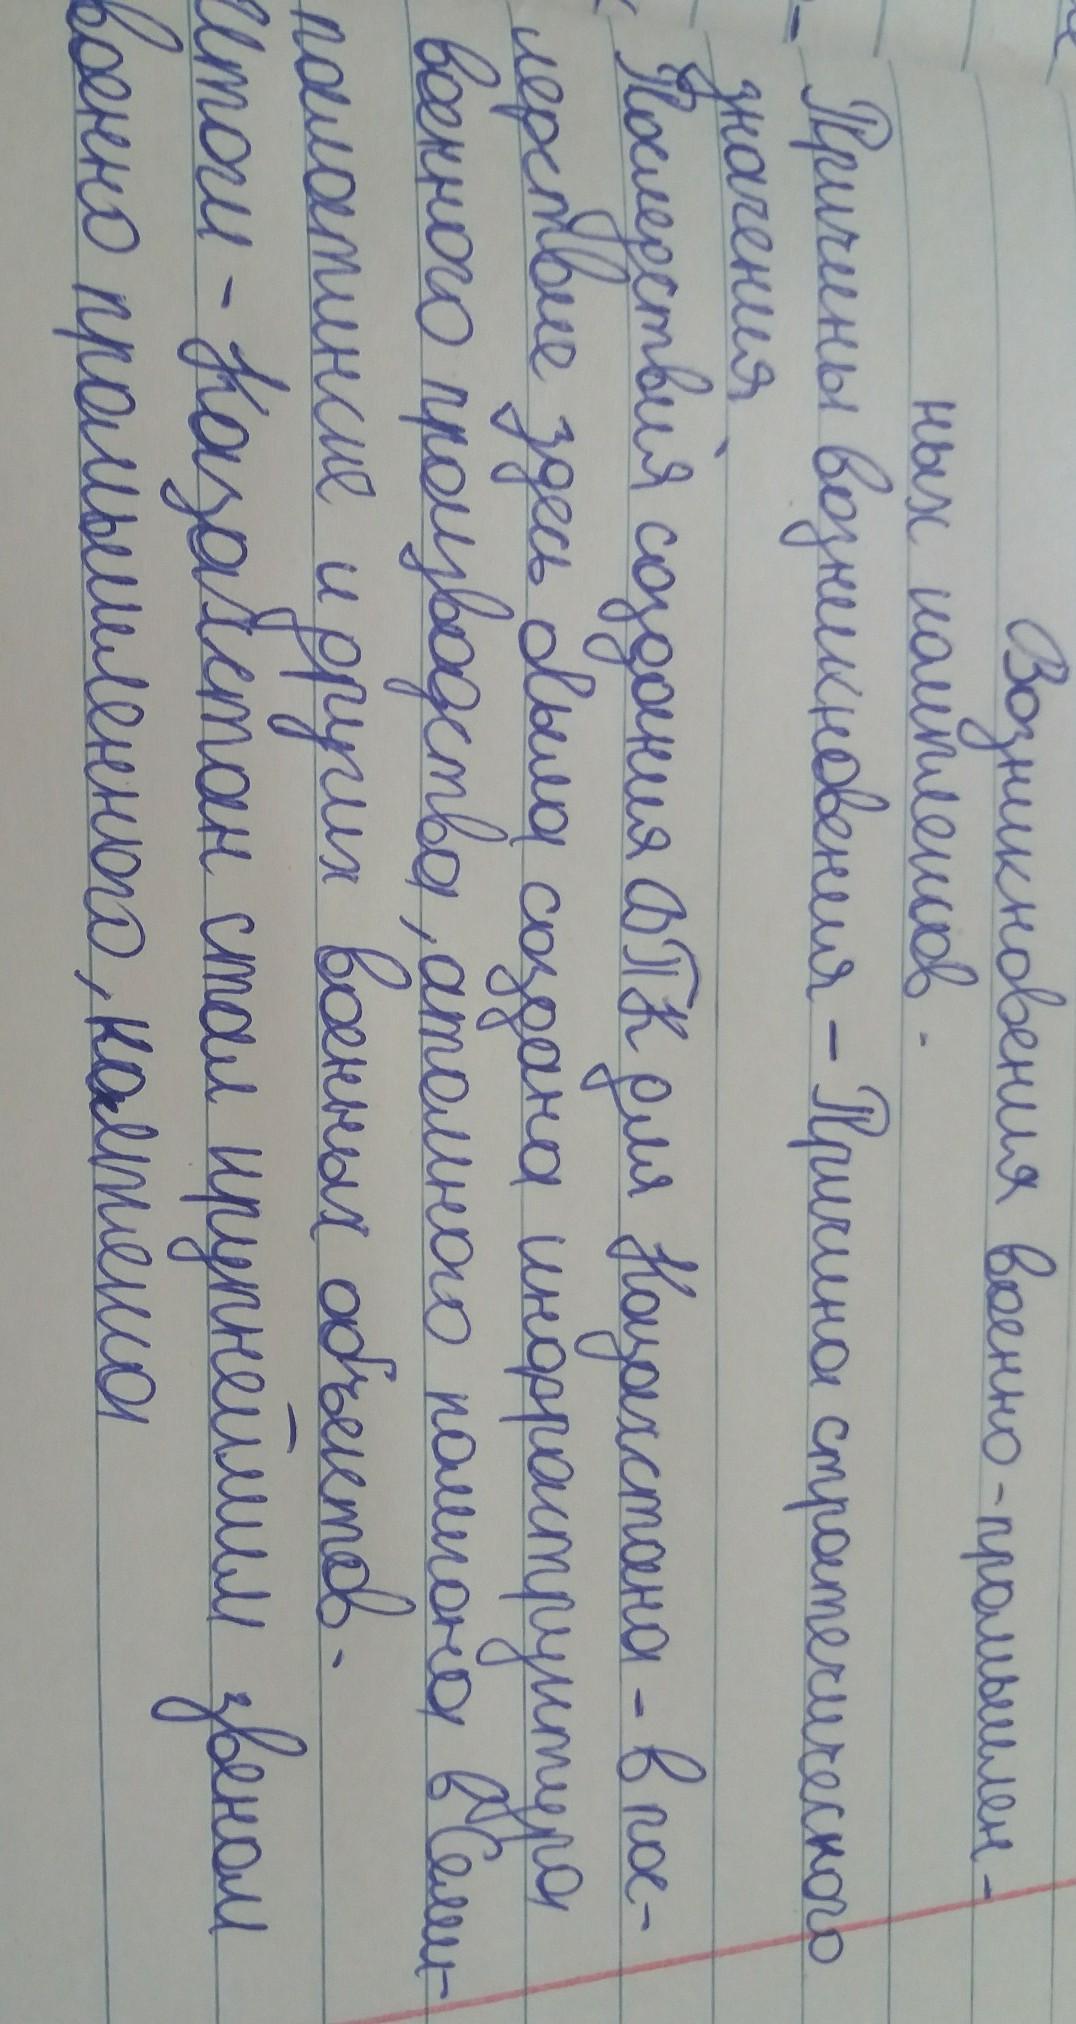 Возникновения военно-промышлен-
ных комплексов.
Причины возникновения - Причина стратегического
значения
Последствия создания ВПК для Казахстана - в пос-
ледствие здесь была создана инфрактруктура
военного производства, атомного полигона в г Семи-
палатинске и других военных объектов.
Итоги - Казахстан стал крупнейшим звеном
военно промышленного, комплекса